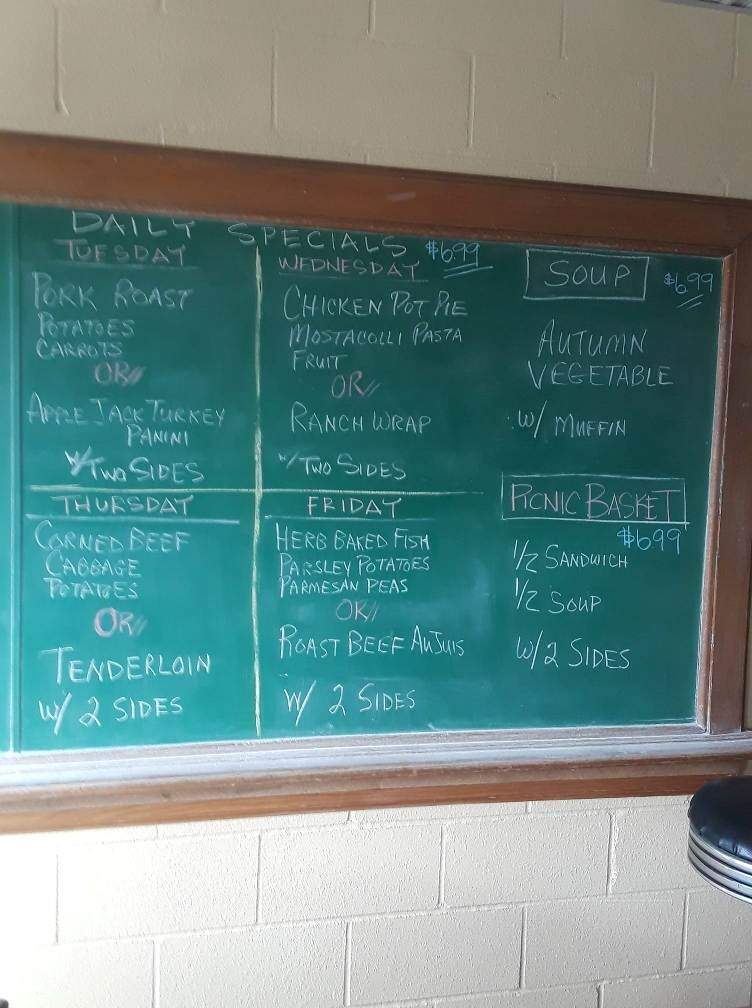 DAILY SPECIALS $6.99
TUESDAY
PORK ROAST
POTATOES
CARROTS
OR//
APPLE JACK TURKEY
PANINI
W/TWO SIDES
WEDNESDAY
CHICKEN POT PIE
MOSTACOLLI PASTA
FRUIT
OR//
RANCH WRAP
W/TWO SIDES
THURSDAY
CORNED BEEF
CABBAGE
POTATOES
OR//
TENDERLOIN
W/ 2 SIDES
FRIDAY
HERB BAKED FISH
PARSLEY POTATOES
PARMESAN PEAS
OR//
ROAST BEEF AUJUIS
W/ 2 SIDES
SOUP $6.99
AUTUMN
VEGETABLE
W/ MUFFIN
PICNIC BASKET
$6.99
1/2 SANDWICH
1/2 SOUP
W/2 SIDES